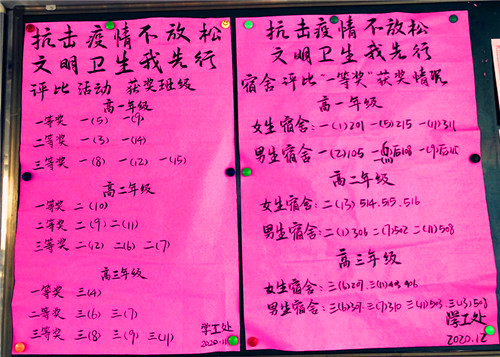 抗击疫情不放松
文明卫生我先行
评比活动 获奖班级
高一年级
一等奖 一(5) 一(9)
二等奖 一(3) 一(14)
三等奖 一(8) 一(12) 一(15)
高二年级
一等奖 二(10)
二等奖 二(9) 二(11)
三等奖 二(12) 二(6) 二(7)
高三年级
一等奖 三(4)
二等奖 三(6) 三(7)
三等奖 三(8) 三(9) 三(11)
学工处
2020.11
抗击疫情不放松
文明卫生我先行
宿舍评比"一等奖"获奖情况
高一年级
女生宿舍:一(1)201 一(5)215 一(11)311
男生宿舍:一(2)105
高二年级
女生宿舍:二(13)514.515.516
男生宿舍:二(1)306 二(7)502 二(11)508
高三年级
女生宿舍:三(6)207
男生宿舍:三(6)307.三(7)310 三(11)503.三(13)508
学工处
2020.12